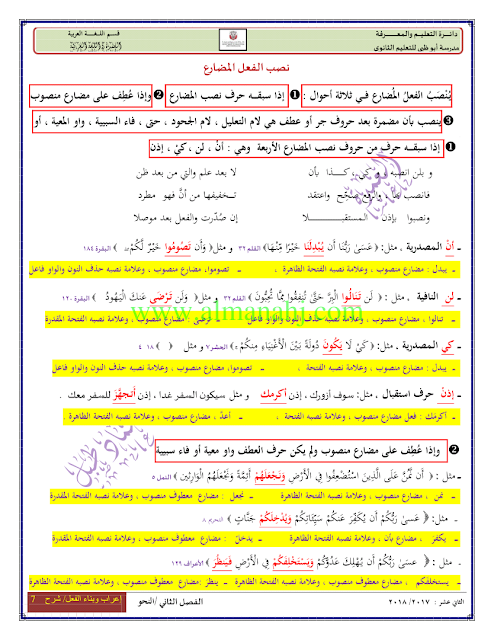 دائـرة التعليـم والمعــرفة
مدرسة أبو ظبي للتعليم الثانوي
قـسم اللـغــة العربية
نصب الفعل المضارع
يُنْصَبُ الفعلُ المُضارع فـي ثلاثة أحوال : ❶ إذا سبقـه حرف نصب المضارع ❷ وإذا عُطِف على مضارع منصوب
❸ ينصب بأن مضمرة بعد حروف جر أو عطف هي لام التعليل ، لام الجحود ، حتى ، فاء السببية ، واو المعية ، أو
❶ إذا سبقـه حرف من حروف نصب المضارع الأربعة وهي : أنْ ، لن ، كيْ ، إذن
و بلن انصبه و كي ، كـذا بأن لا بعد علم والتي من بعد ظن
فانصب بها ، والرفع صحِّح واعتقد تـخفيفها من أنَّ فهو مطرد
ونصبوا بإذن المستقبـلا إن صُدّرت والفعل بعد موصلا
ـ أنْ المصدرية . مثل: ﴿عَسَىٰ رَبُّنَا أَن يُبْدِلَنَا خَيْرًا مِّنْهَا﴾ القلم ٣٢ و مثل﴿ وَأَن تَصُومُوا خَيْرٌ لَّكُمْ﴾ البقرة ١٨٤
ـ يبدل : مضارع منصوب ، وعلامة نصبه الفتحة الظاهرة . ـ تصوموا: مضارع منصوب ، وعلامة نصبه حذف النون والواو فاعل
ـ لن النافية . مثل : ﴿ لَن تَنَالُوا الْبِرَّ حَتَّىٰ تُنفِقُوا مِمَّا تُحِبُّونَ ﴾ القلم ٣٢ و مثل﴿ وَلَن تَرْضَىٰ عَنكَ الْيَهُودُ ﴾ البقرة ١٢٠
ـ تنالوا : مضارع منصوب ، وعلامة نصبه حذف النون والواو فاعل ـ ترضى : مضارع منصوب ، وعلامة نصبه الفتحة المقدرة
www.almanahj.com
ـ كي المصدرية . مثل: ﴿كَيْ لَا يَكُونَ دُولَةً بَيْنَ الْأَغْنِيَاءِ مِنكُمْ ﴾ الحشر٧ و مثل ﴿ ﴾
ـ يبدل : مضارع منصوب ، وعلامة نصبه الفتحة ـ تصوموا: مضارع منصوب ، وعلامة نصبه حذف النون والواو فاعل
ـ إذنْ حرف استقبال . مثل: سوف أزورك ، إذن أكرمك و مثل سيكون السفر غدا ، إذن أتجهَّزَ للسفر معك .
ـ أكرمك : فعل مضارع منصوب ، وعلامة نصبه الفتحة ـ أعدّ : مضارع منصوب ، وعلامة نصبه الفتحة الظاهرة
❷ وإذا عُطِف على مضارع منصوب ولم يكن حرف العطف واو معية أو فاء سببية
ـ مثل : ﴿ أَن نَّمُنَّ عَلَى الَّذِينَ اسْتُضْعِفُوا فِي الْأَرْضِ وَنَجْعَلَهُمْ أَئِمَّةً وَنَجْعَلَهُمُ الْوَارِثِينَ ﴾
ـ نمن : مضارع منصوب ، وعلامة نصبه الفتحة الظاهرة ـ نجعل : مضارع معطوف منصوب ، وعلامة نصبه الفتحة المقدرة
ـ مثل: ﴿ عَسَىٰ رَبُّكُمْ أَن يُكَفِّرَ عَنكُمْ سَيِّئَاتِكُمْ وَيُدْخِلَكُمْ جَنَّاتٍ ﴾ التحريم ٨
ـ يكفرَ : مضارع بأن ، وعلامة نصبه الفتحة الظاهرة ـ يدخلَ : مضارع معطوف منصوب ، وعلامة نصبه الفتحة المقدرة
ـ مثل : ﴿ عَسَىٰ رَبُّكُمْ أَن يُهْلِكَ عَدُوَّكُمْ وَيَسْتَخْلِفَكُمْ فِي الْأَرْضِ فَيَنظُرَ ﴾ الأعراف ١٢٩
ـ يستخلفكم : مضارع معطوف منصوب ، وعلامة نصبه الفتحة الظاهرة ـ ينظر: مضارع معطوف منصوب ، وعلامة نصبه الفتحة الظاهرة
الثاني عشر : ٢٠١٧ / ٢٠١٨
الفصل الثاني /النحو
إعراب وبناء الفعل/ شرح 7